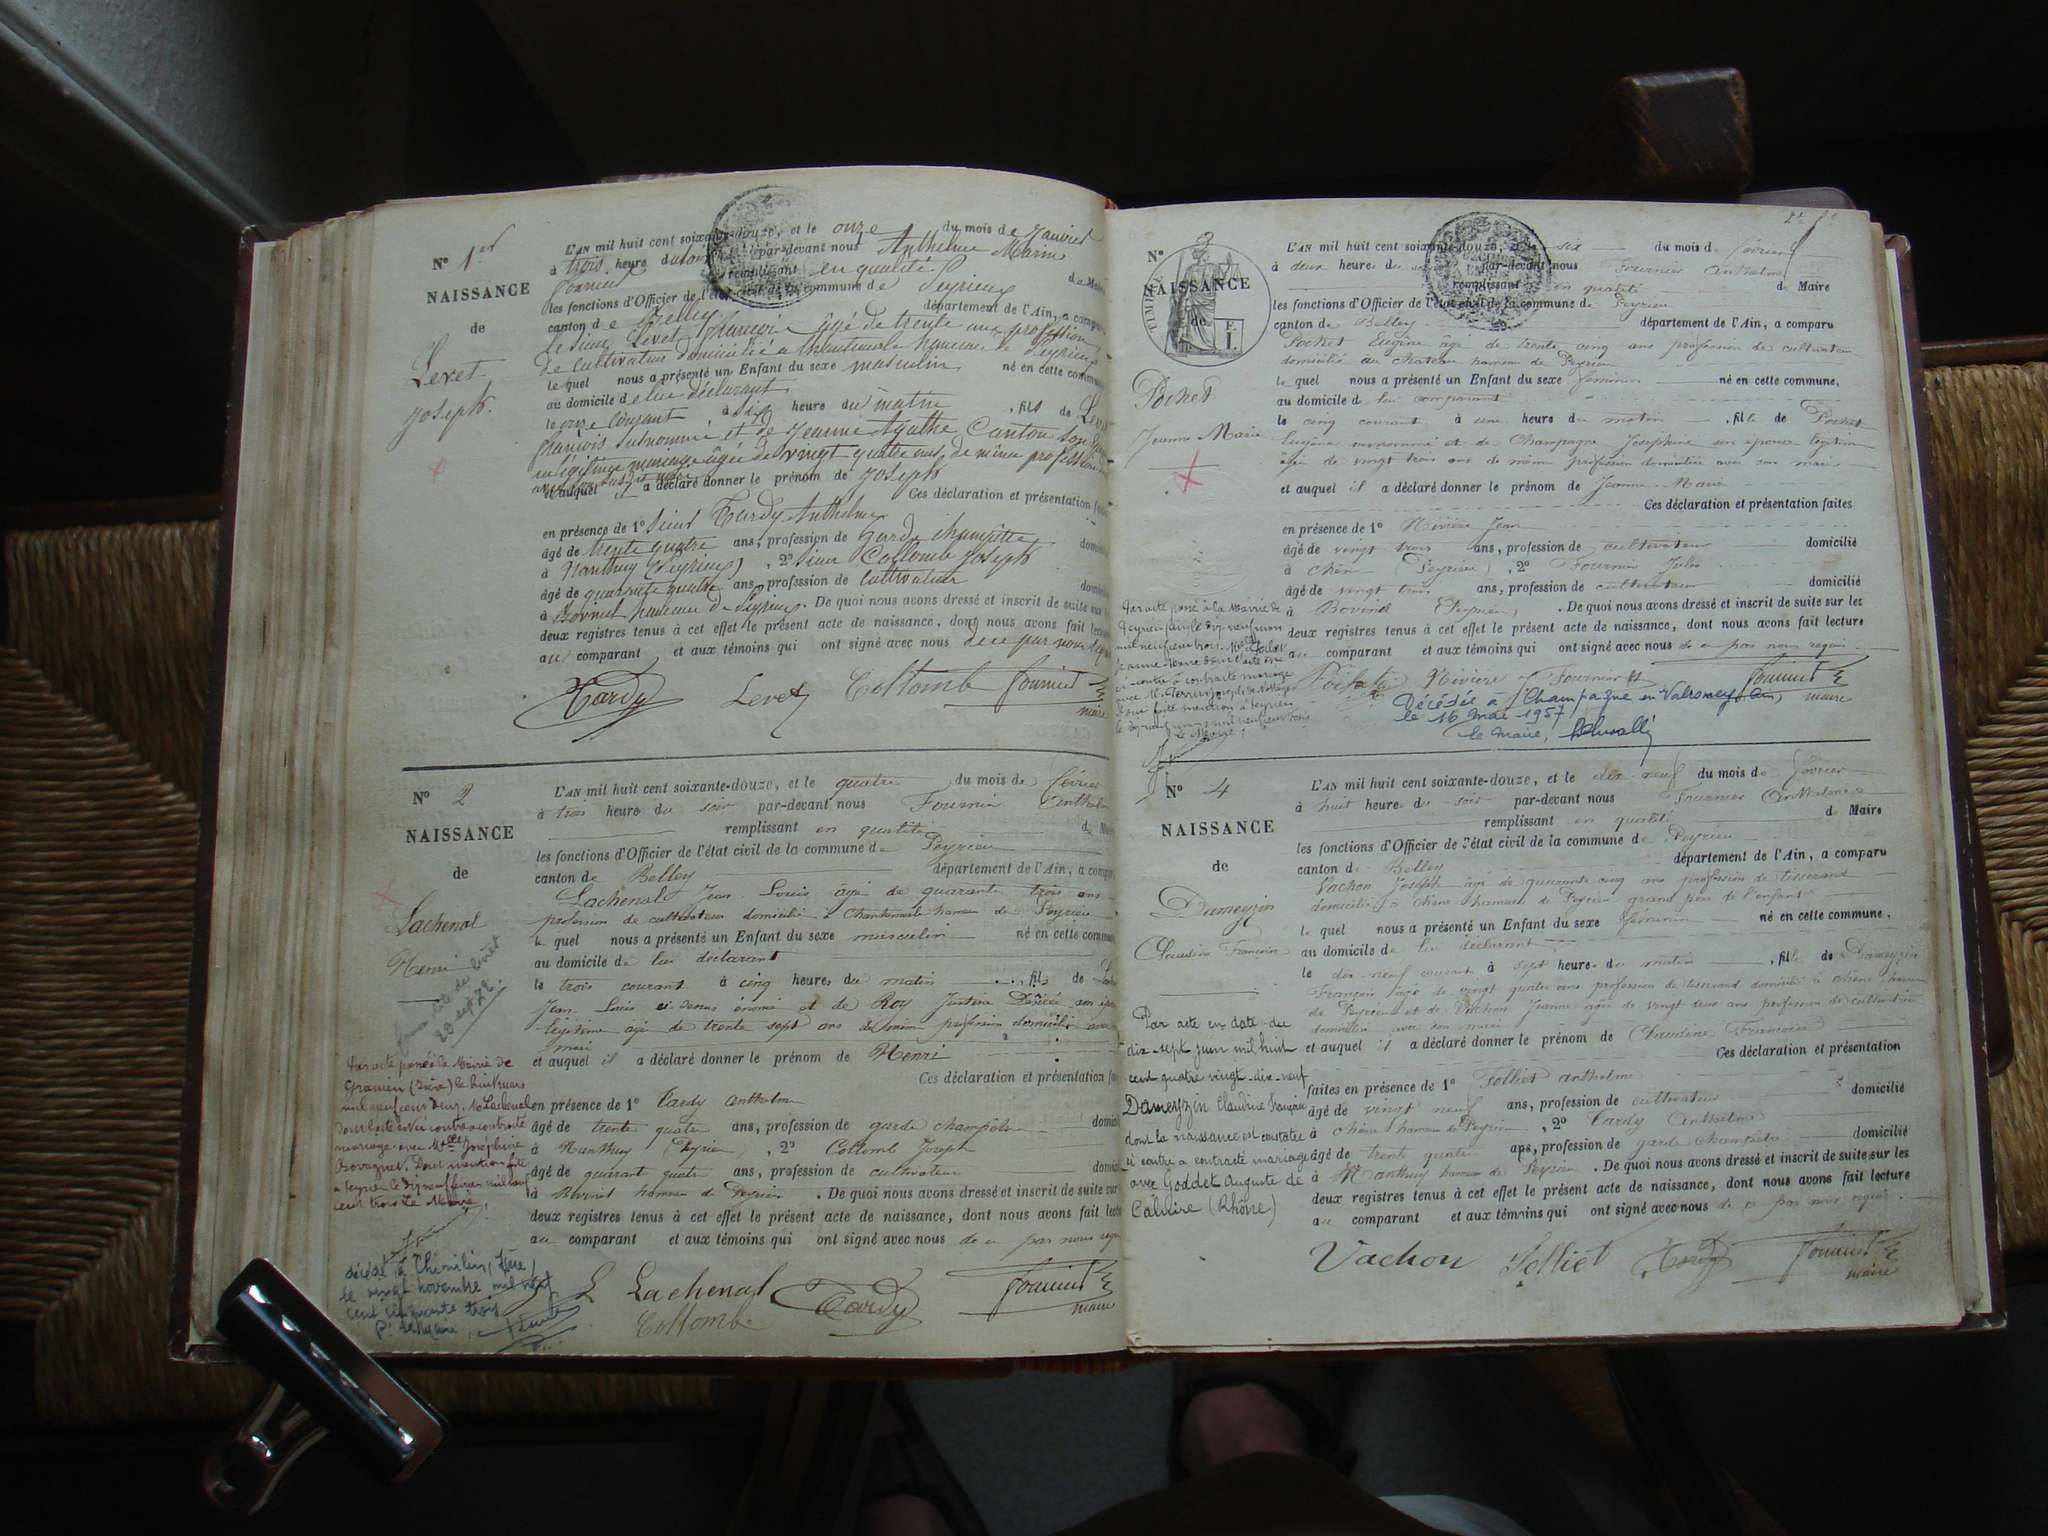 N° 1er
NAISSANCE
de
Levet
Joseph.
L'AN mil huit cent soixante-douze, et le onze du mois de Janvier
à trois heure du soir par-devant nous Anthelme Marin
Fournier remplissant en qualité de Maire
les fonctions d'Officier de l'état civil de la commune de Peyrieu
canton de Belley département de l'Ain, a comparu
le sieur Levet François âgé de trente ans profession
de cultivateur domicilié à Chantemerle hameau de Peyrieu
le quel nous a présenté un Enfant du sexe masculin né en cette commune
au domicile de lui déclarant
le onze courant à six heure du matin, fils de Levet
François susnommé et de Jeanne Agathe Canton son épouse
en légitime mariage âgée de vingt quatre ans de même profession
et auquel il a déclaré donner le prénom de Joseph
Ces déclaration et présentation faites
en présence de 1° sieur Tardy Anthelme
âgé de trente quatre ans, profession de garde champêtre domicilié
à Nanthuy (Peyrieu), 2° sieur Collomb Joseph
âgé de quarante quatre ans, profession de cultivateur domicilié
à Bovinel hameau de Peyrieu. De quoi nous avons dressé et inscrit de suite sur les
deux registres tenus à cet effet le présent acte de naissance, dont nous avons fait lecture
au comparant et aux témoins qui ont signé avec nous de ce par nous requis
Tardy Levet Collomb Fournier
maire
N° 2
NAISSANCE
de
Lachenal
Henri
20 sept 26.
L'AN mil huit cent soixante-douze, et le quatre du mois de février
à trois heure du soir par-devant nous Fournier Anthelme
remplissant en qualité de Maire
les fonctions d'Officier de l'état civil de la commune de Peyrieu
canton de Belley département de l'Ain, a comparu
Lachenal Jean Louis âgé de quarante trois ans
profession de cultivateur domicilié à Chantemerle hameau de Peyrieu
le quel nous a présenté un Enfant du sexe masculin né en cette commune
au domicile de lui déclarant
le trois courant à cinq heure du matin, fils de
Jean Louis et de Roy Justine Désirée son épouse
légitime âgé de trente sept ans de même profession domicilié avec son
mari
et auquel il a déclaré donner le prénom de Henri
Ces déclaration et présentation faites
en présence de 1° Tardy Anthelme
âgé de trente quatre ans, profession de garde champêtre domicilié
à Nanthuy (Peyrieu), 2° Collomb Joseph
âgé de quarante quatre ans, profession de cultivateur domicilié
à Bovinel hameau de Peyrieu. De quoi nous avons dressé et inscrit de suite sur
deux registres tenus à cet effet le présent acte de naissance, dont nous avons fait lecture
au comparant et aux témoins qui ont signé avec nous de ce par nous requis
L Lachenal Tardy Fournier
Collomb maire
Par acte passé à la Mairie de
Granieu (Isère) le huit mars
mil neuf cent deux, M. Lachenal
dont l'acte est ci contre a contracté
mariage avec Melle Joséphine
Bovagnet. Dont mention faite
à Peyrieu le dix neuf février mil neuf
cent trois Le Maire,
décédé à Chimilin, (Isère)
le vingt novembre mil neuf
cent cinquante trois
P. le Maire,
N° 3
NAISSANCE
de
Pochet
Jeanne Marie
L'AN mil huit cent soixante-douze, et le six du mois de février
à deux heure du soir par-devant nous Fournier Anthelme
remplissant en qualité de Maire
les fonctions d'Officier de l'état civil de la commune de Peyrieu
canton de Belley département de l'Ain, a comparu
Pochet Eugène âgé de trente cinq ans profession de cultivateur
domicilié au chateau hameau de Peyrieu
le quel nous a présenté un Enfant du sexe féminin né en cette commune,
au domicile de lui comparant
le cinq courant à une heure du matin, fille de Pochet
Eugène susnommé et de Champagne Joséphine son épouse légitime
âgée de vingt trois ans de même profession domiciliée avec son mari
et auquel il a déclaré donner le prénom de Jeanne-Marie
Ces déclaration et présentation faites
en présence de 1° Rivière Jean
âgé de vingt trois ans, profession de cultivateur domicilié
à Chêne (Peyrieu), 2° Fournier Jules
âgé de vingt trois ans, profession de cultivateur domicilié
à Bovinel (Peyrieu). De quoi nous avons dressé et inscrit de suite sur les
deux registres tenus à cet effet le présent acte de naissance, dont nous avons fait lecture
au comparant et aux témoins qui ont signé avec nous de ce par nous requis
Rivière Fournier Fournier
maire
Décédée à Champagne en Valromey (Ain)
le 16 mai 1957
le maire,
Par acte passé à la Mairie de
Peyrieu le dix neuf mars
mil neuf cent trois, Melle Pochet
Jeanne Marie dont l'acte est
ci-contre a contracté mariage
Dont faite mention à Peyrieu
le dix neuf mars mil neuf cent trois
Le Maire,
N° 4
NAISSANCE
de
Dameyzin
Claudine Françoise
L'AN mil huit cent soixante-douze, et le dix-neuf du mois de février
à huit heure du soir par-devant nous Fournier Anthelme
remplissant en qualité de Maire
les fonctions d'Officier de l'état civil de la commune de Peyrieu
canton de Belley département de l'Ain, a comparu
Vachon Joseph âgé de quarante cinq ans profession de tisserand
domicilié à Chêne hameau de Peyrieu grand père de l'enfant
le quel nous a présenté un Enfant du sexe féminin né en cette commune,
au domicile de lui déclarant
le dix-neuf courant à sept heure du matin, fille de Dameyzin
François âgé de vingt quatre ans profession de tisserand domicilié à Chêne hameau
de Peyrieu et de Vachon Jeanne âgée de vingt deux ans profession de cultivatrice
domiciliée avec son mari
et auquel il a déclaré donner le prénom de Claudine Françoise
Ces déclaration et présentation
faites en présence de 1° Tolliet Anthelme domicilié
âgé de vingt neuf ans, profession de cultivateur
à Chêne hameau de Peyrieu, 2° Tardy Anthelme
âgé de trente quatre ans, profession de garde champêtre domicilié
à Nanthuy hameau de Peyrieu. De quoi nous avons dressé et inscrit de suite sur les
deux registres tenus à cet effet le présent acte de naissance, dont nous avons fait lecture
au comparant et aux témoins qui ont signé avec nous de ce par nous requis
Vachon Tolliet Tardy Fournier
maire
Par acte en date du
dix-sept juin mil huit
cent quatre vingt-dix-neuf
Dameyzin Claudine Françoise
dont la naissance est constatée
ci contre a contracté mariage
avec Goddet Auguste de
Caluire (Rhône)